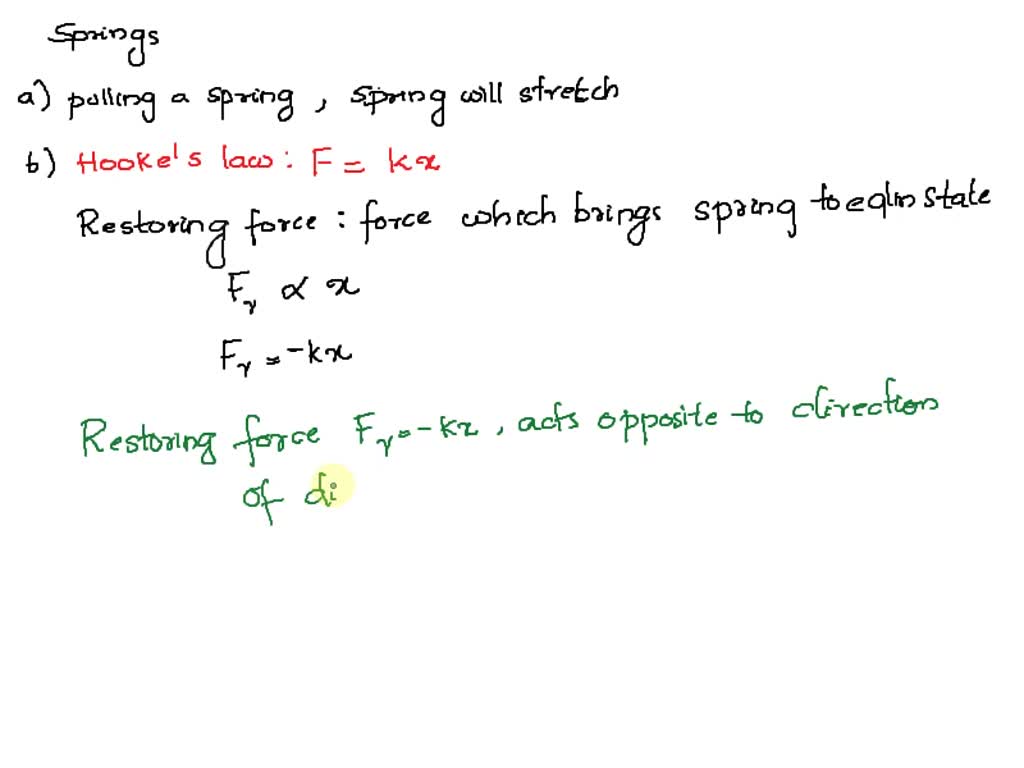 Springs
a) pulling a spring, spring will stretch
b) Hooke's law: F = kx
Restoring force: force which brings spring to eqlm state
Fᵣ ∝ x
Fᵣ = -kx
Restoring force Fᵣ = -kx, acts opposite to direction
of di